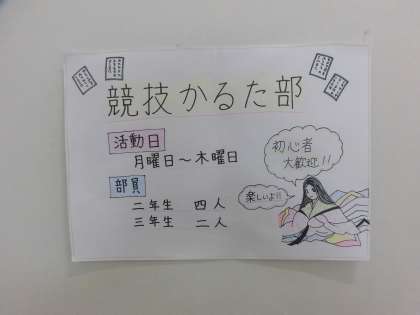 競技かるた部
活動日
月曜日～木曜日
部員
二年生 四人
三年生 二人
初心者
大歓迎!!
楽しいよ!!